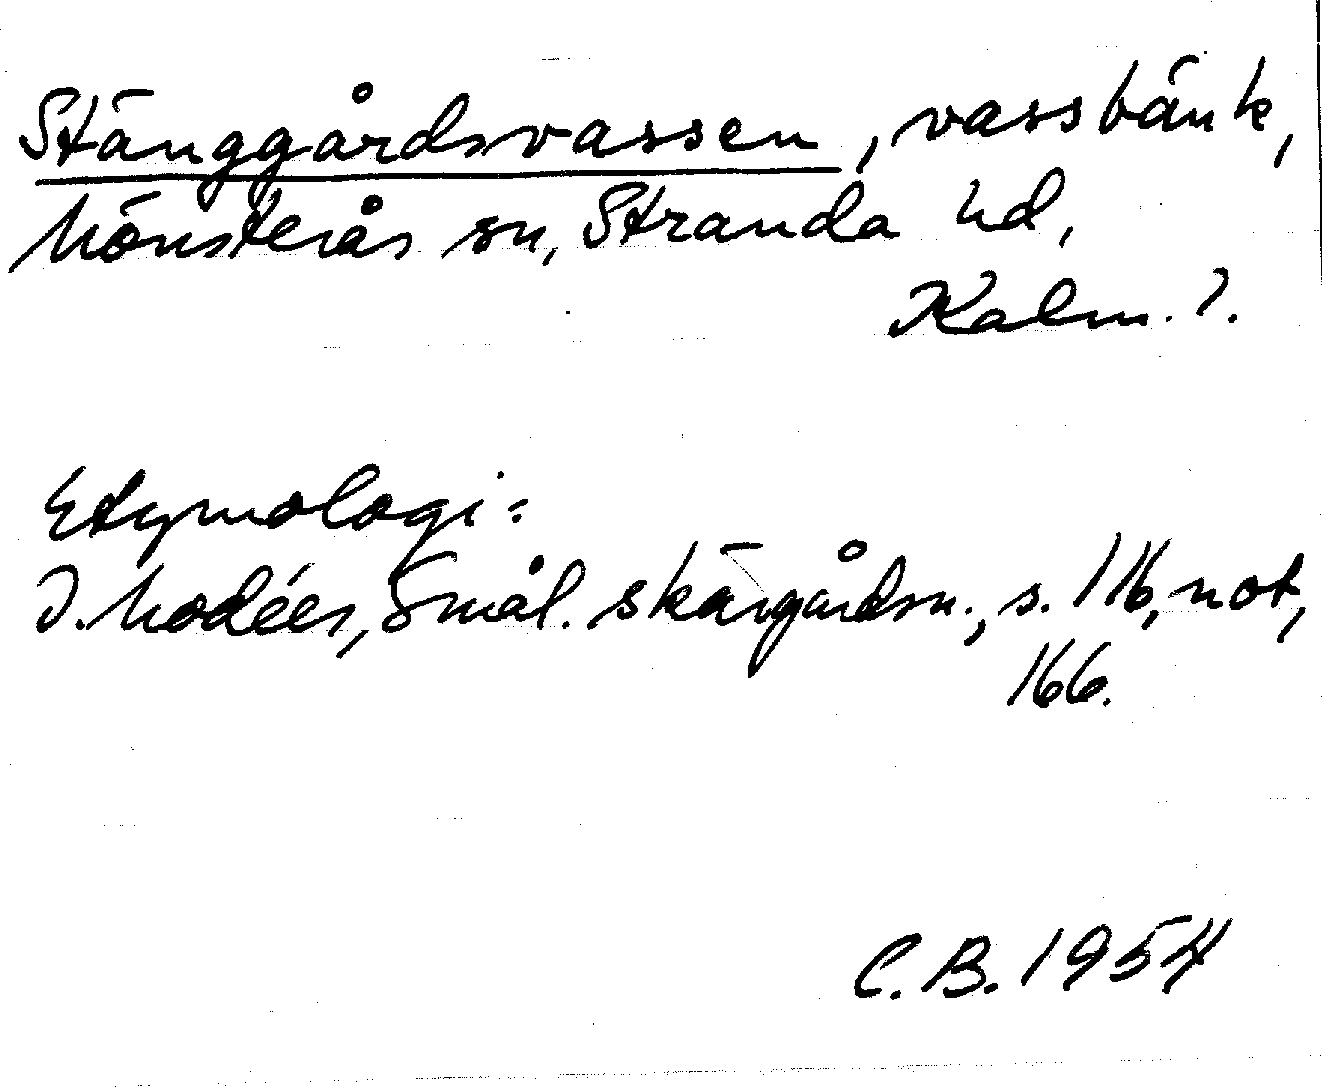 Stänggårdsvassen, vassbänk,
Mönsterås sn, Stranda hd,
Kalm. l.
Etymologi:
I. Modéer, Smål. skärgårdsn., s. 116, not,
166.
C.B. 1954